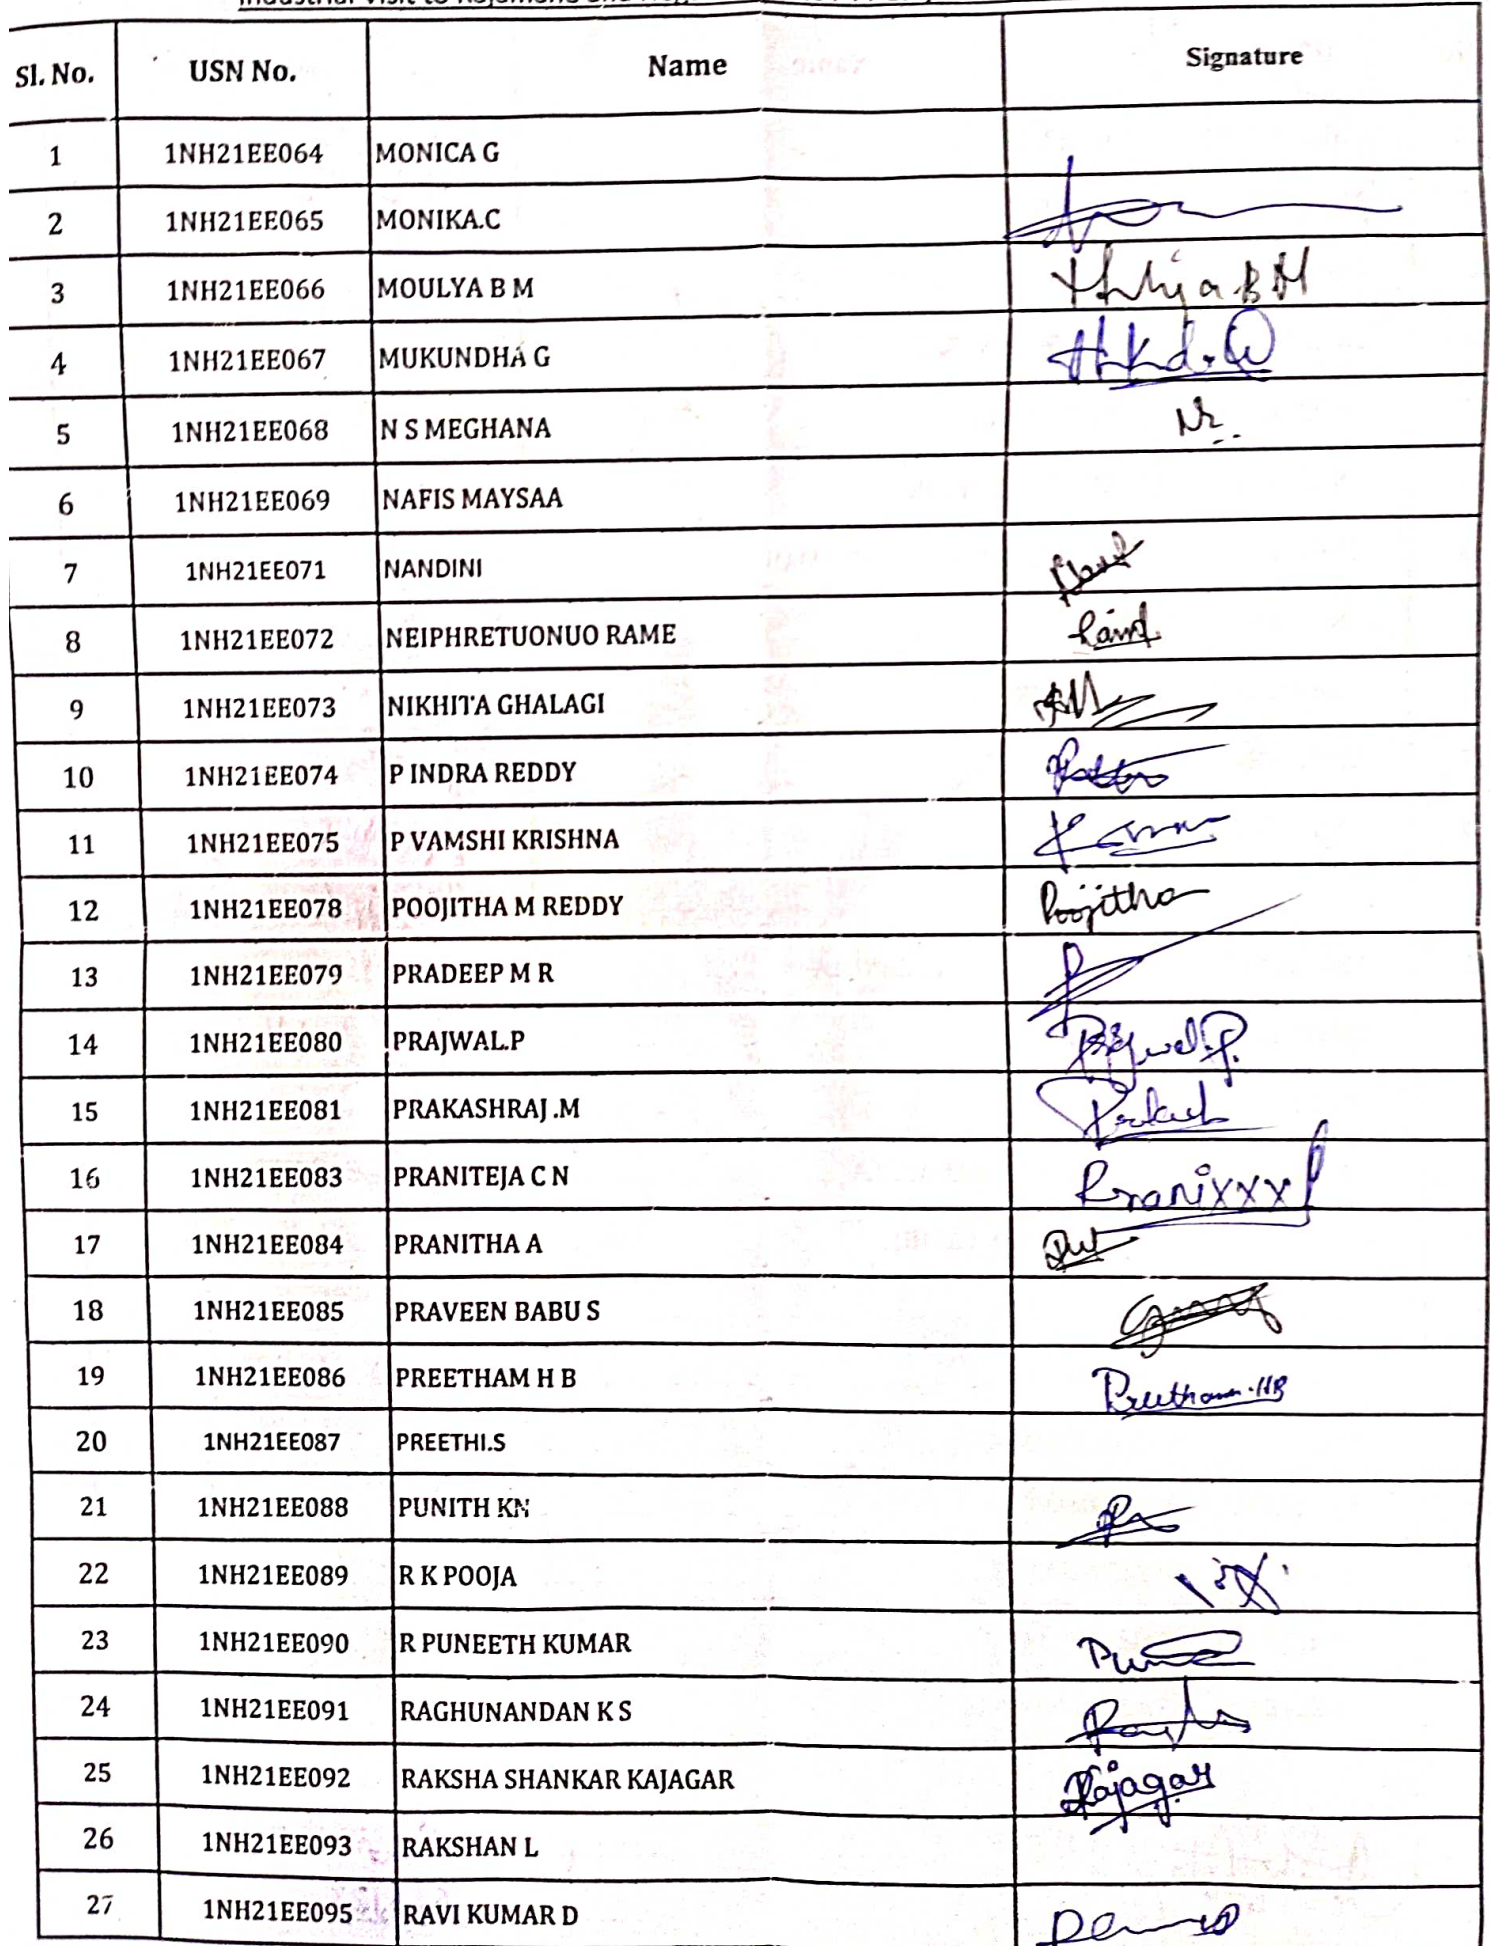 Industrial Visit to
Sl. No. USN No. Name Signature
1 1NH21EE064 MONICA G
2 1NH21EE065 MONIKA.C
3 1NH21EE066 MOULYA B M
4 1NH21EE067 MUKUNDHA G
5 1NH21EE068 N S MEGHANA
6 1NH21EE069 NAFIS MAYSAA
7 1NH21EE071 NANDINI
8 1NH21EE072 NEIPHRETUONUO RAME
9 1NH21EE073 NIKHITA GHALAGI
10 1NH21EE074 P INDRA REDDY
11 1NH21EE075 P VAMSHI KRISHNA
12 1NH21EE078 POOJITHA M REDDY Poojitha
13 1NH21EE079 PRADEEP M R
14 1NH21EE080 PRAJWAL.P Prajwal.P.
15 1NH21EE081 PRAKASHRAJ .M Prakash
16 1NH21EE083 PRANITEJA C N Pranixxx
17 1NH21EE084 PRANITHA A
18 1NH21EE085 PRAVEEN BABU S
19 1NH21EE086 PREETHAM H B Preetham.HB
20 1NH21EE087 PREETHI.S
21 1NH21EE088 PUNITH KN
22 1NH21EE089 R K POOJA
23 1NH21EE090 R PUNEETH KUMAR
24 1NH21EE091 RAGHUNANDAN K S
25 1NH21EE092 RAKSHA SHANKAR KAJAGAR Kajagar
26 1NH21EE093 RAKSHAN L
27 1NH21EE095 RAVI KUMAR D